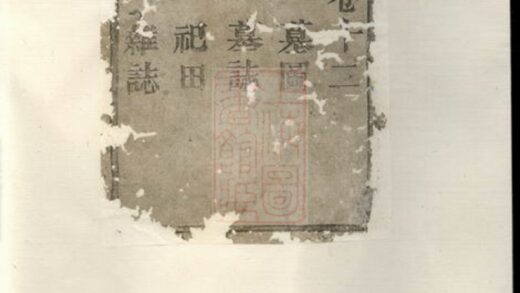 卷十二
墓圖
墓誌
祀田
雜誌